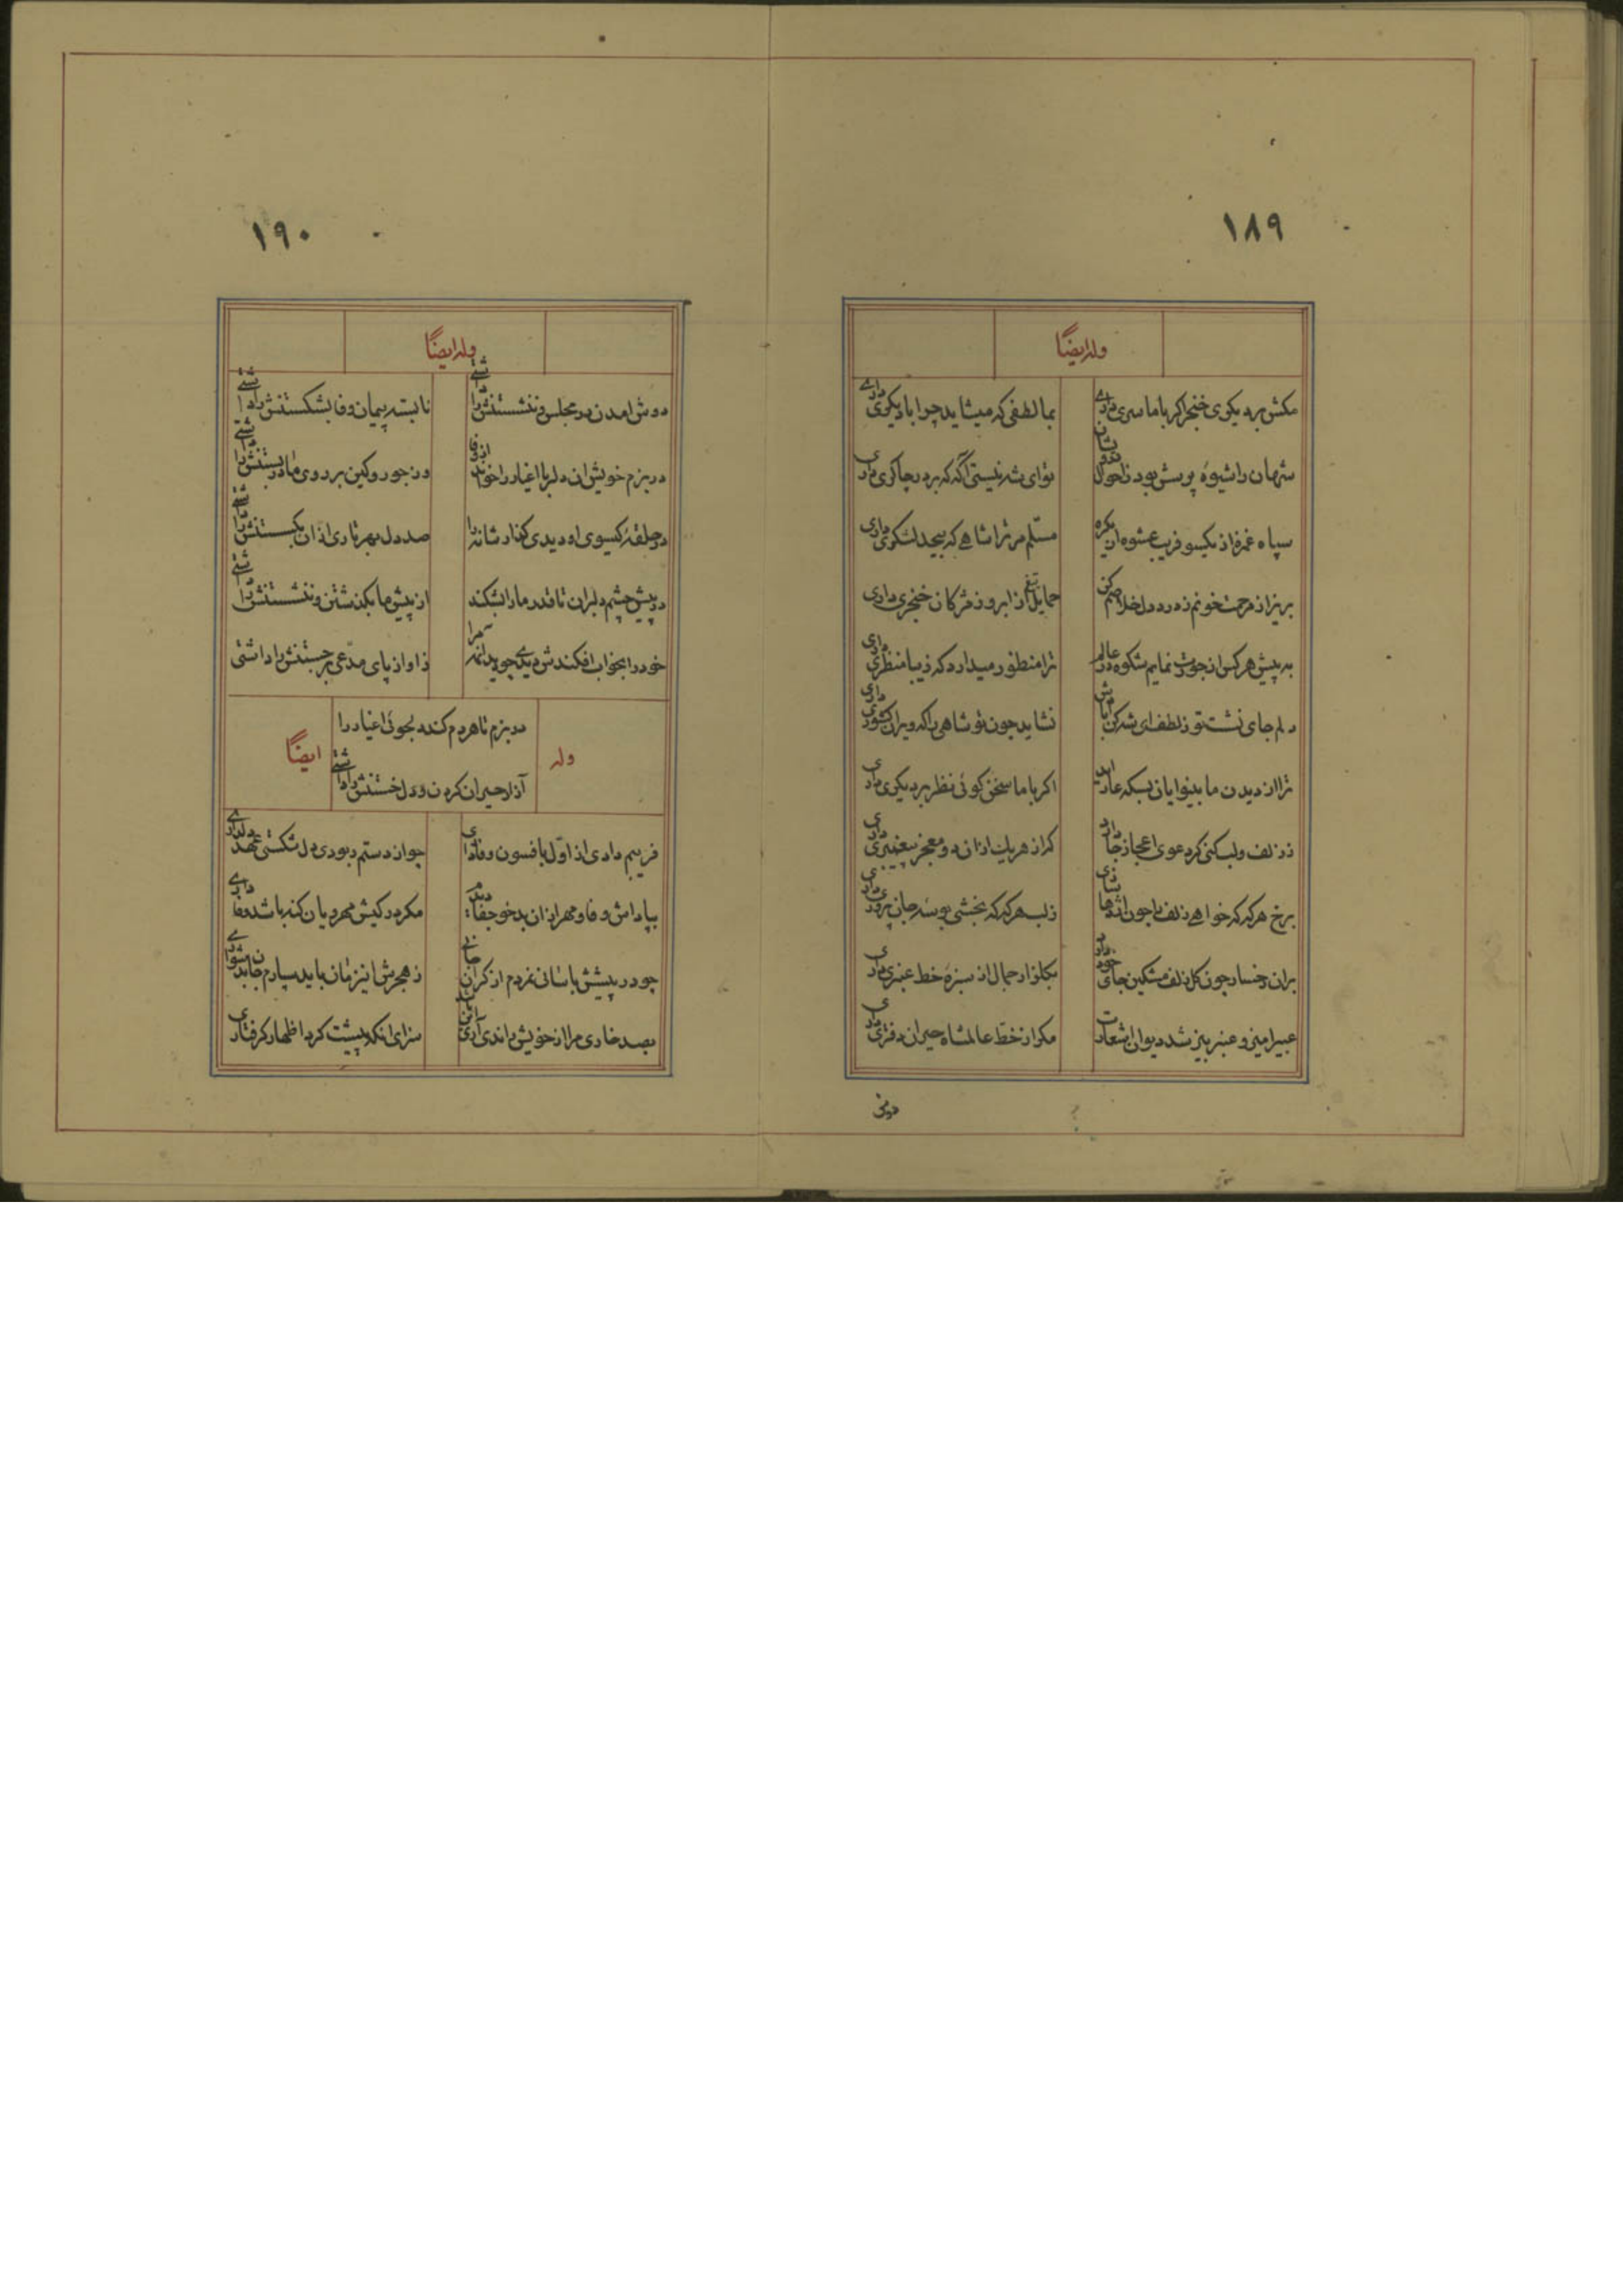 ۱۸۹
وله ایضاً
مکش بر دیگری خنجر اگر با ما سری داری
بما لطفی که میشاید چرا با دیگری داری
شهان را شیوه پرسش بود ز احوال درویشان
تو ای شه نیستی آگه که بر در چاکری داری
سپاه غمزه از یکسو فریب عشوه از یکره
مسلم مر ترا شاهی که بیحد لشکری داری
بریز از مرحمت خونم ز درد دل خلاصم کن
حمایل تیغ از ابرو ز مژکان خنجری داری
به پیش هر کس از جورت نمایم شکوه در عالم
ترا منظور میدارد که زیبا منظری داری
دلم جای نشست تو ز لطف ای شه کن آبادش
نشاید چون تو شاهی را که ویران کشوری داری
ترا از دیدن ما بینوایان بسکه عار اید
اکر با ما سخن کوئی نظر بر دیکری داری
ز زلف و لب کنی کر دعوی اعجاز جا دارد
که از هر یک ازان دو معجز پیغمبری داری
برخ هر که که خواهی زلف را چون اژدها سازی
ز لب هر که که بخشی بوسه جان پروری داری
بران رخسار چون کل زلف مشکین جای خود دارد
بکلزار جمال از سبزه خط عنبری داری
عبیر امیز و عنبر بیز شد دیوان اشعارت
مکر از خط عالمشاه حیران دفتری داری
دوش
۱۹۰
وله ایضاً
دوش امدن در مجلس و ننشستنش را داشتی
نابسته پیمان وفا بشکستنش را داشتی
در بزم خویش ان دلربا اغیار را خواند از وفا
در جور و کین بر روی ما در بستنش را داشتی
در حلقه کیسوی او دیدی کذار شانه را
صد دل بهر تاری از ان بکسستنش را داشتی
در پیش چشم دلبران تا قدر ما را بشکند
از پیش ما بکذشتن و ننشستنش را داشتی
خود را بخواب افکندنش دیکر چو دید
ز اواز پای مدعی برجستنش را داشتی
در بزم تا هر دم کند دلجوئی اغیار را
آزار حیران کردن و دل خستنش را داشتی
وله ایضاً
فریبم دادی از اول بافسون وفاداری
چو از دستم ربودی دل شکستی عهد دلداری
بپاداش وفا و مهر ازان بدخو جفا دیدم
مکر در کیش مهرویان کنه باشد وفاداری
چو در پیشش باسانی نمردم از کران جانی
ز هجرش این زمان باید سپارم جان بدشواری
بصد خاری مرا از خویش راندی آری
سزای انکه پیشت کرد اظهار کرفتاری